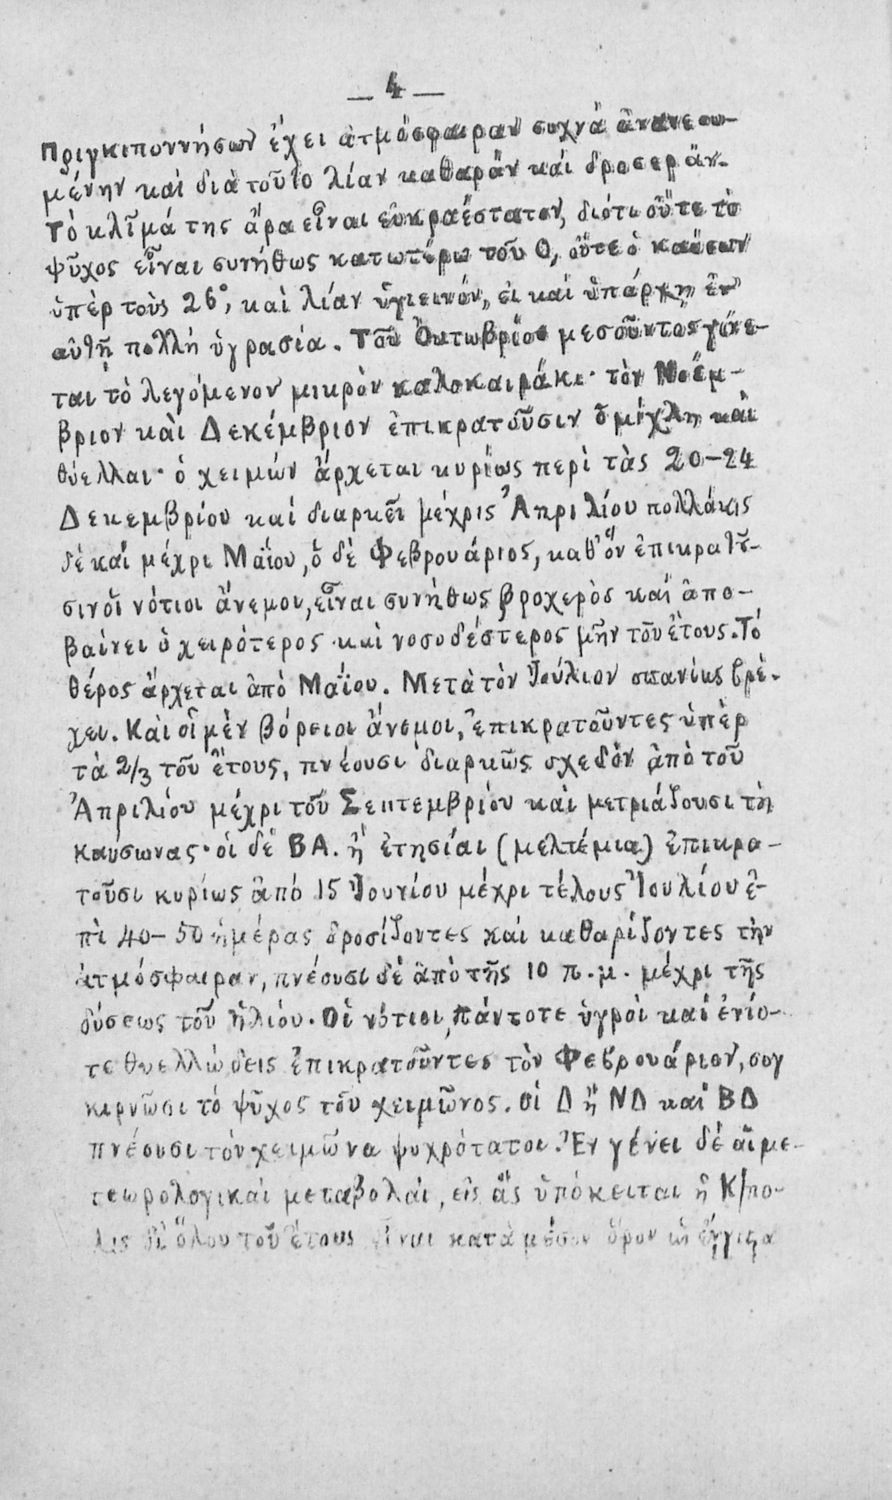 — 4 —
Πριγκιποννήσων ἔχει ἀτμόσφαιραν συχνὰ ἀνανεω-
μένην καὶ διὰ τοῦτο λίαν καθαρὰν καὶ δροσερὰν.
Τὸ κλῖμά της ἄρα εἶναι εὐκραέστατον, διότι οὔτε τὸ
ψῦχος εἶναι συνήθως κατωτέρω τοῦ 0, οὔτε ὁ καύσων
ὑπὲρ τοὺς 26°, καὶ λίαν ὑγιεινόν, εἰ καὶ ὑπάρχῃ ἐν
αὐτῇ πολλὴ ὑγρασία. Τοῦ Ὀκτωβρίου μεσοῦντος γίνε-
ται τὸ λεγόμενον μικρὸν καλοκαιράκι· τὸν Νοέμ-
βριον καὶ Δεκέμβριον ἐπικρατοῦσιν ὁμίχλη καὶ
θύελλαι· ὁ χειμὼν ἄρχεται κυρίως περὶ τὰς 20-24
Δεκεμβρίου καὶ διαρκεῖ μέχρις Ἀπριλίου πολλάκις
δὲ καὶ μέχρι Μαΐου, ὁ δὲ Φεβρουάριος, καθ' ὃν ἐπικρατοῦ-
σιν οἱ νότιοι ἄνεμοι, εἶναι συνήθως βροχερὸς καὶ ἀπο-
βαίνει ὁ χειρότερος καὶ νοσωδέστερος μῆν τοῦ ἔτους. Τὸ
θέρος ἄρχεται ἀπὸ Μαΐου. Μετὰ τὸν Ἰούλιον σπανίως βρέ-
χει. Καὶ οἱ μὲν βόρειοι ἄνεμοι, ἐπικρατοῦντες ὑπὲρ
τὰ 2/3 τοῦ ἔτους, πνέουσι διαρκῶς σχεδὸν ἀπὸ τοῦ
Ἀπριλίου μέχρι τοῦ Σεπτεμβρίου καὶ μετριάζουσι τὴ
καύσωνας· οἱ δὲ ΒΑ. ἢ ἐτησίαι (μελτέμια) ἐπικρα-
τοῦσι κυρίως ἀπὸ 15 Ἰουνίου μέχρι τέλους Ἰουλίου ἐ-
πὶ 40-50 ἡμέρας δροσίζοντες καὶ καθαρίζοντες τὴν
ἀτμόσφαιραν, πνέουσι δὲ ἀπὸ τῆς 10 π.μ. μέχρι τῆς
δύσεως τοῦ ἡλίου. Οἱ νότιοι, πάντοτε ὑγροὶ καὶ ἐνίο-
τε θυελλώδεις ἐπικρατοῦντες τὸν Φεβρουάριον, συγ
κιρνῶσι τὸ ψῦχος τοῦ χειμῶνος. Οἱ Δ ἢ ΝΔ καὶ ΒΔ
πνέουσι τὸν χειμῶνα ψυχρότατοι. Ἐν γένει δὲ αἱ με-
τεωρολογικαὶ μεταβολαὶ, εἰς ἃς ὑπόκειται ἡ Κ/πο-
λις δι' ὅλου τοῦ ἔτους εἶναι κατὰ μέσον ὅρον ὡς ἔγγιστα